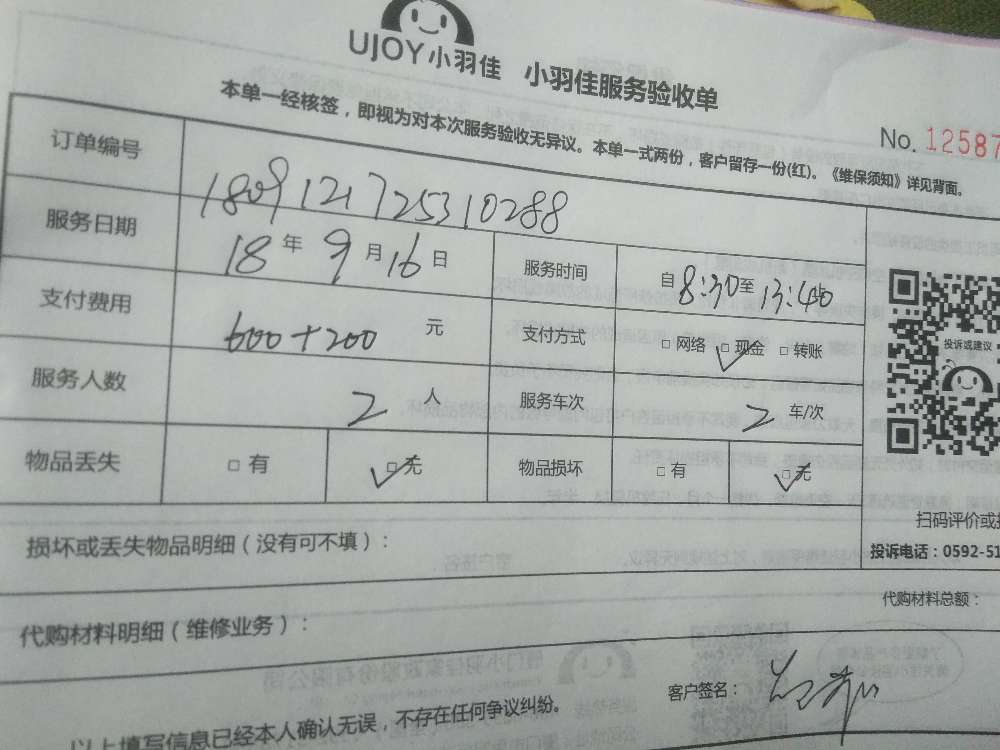 UJOY小羽佳 小羽佳服务验收单
No. 12587
本单一经核签，即视为对本次服务验收无异议。本单一式两份，客户留存一份(红)。《维保须知》详见背面。
订单编号 1809121725310288
服务日期 18 年 9 月 16 日 服务时间 自 8:30 至 13:40
支付费用 600+200 元 支付方式 □ 网络 □ 现金 □ 转账
服务人数 2 人 服务车次 2 车/次
物品丢失 □ 有 □ 无 物品损坏 □ 有 □ 无
投诉或建议
扫码评价或
投诉电话：0592-51
损坏或丢失物品明细（没有可不填）：
代购材料总额：
代购材料明细（维修业务）：
客户签名：
以上填写信息已经本人确认无误，不存在任何争议纠纷。